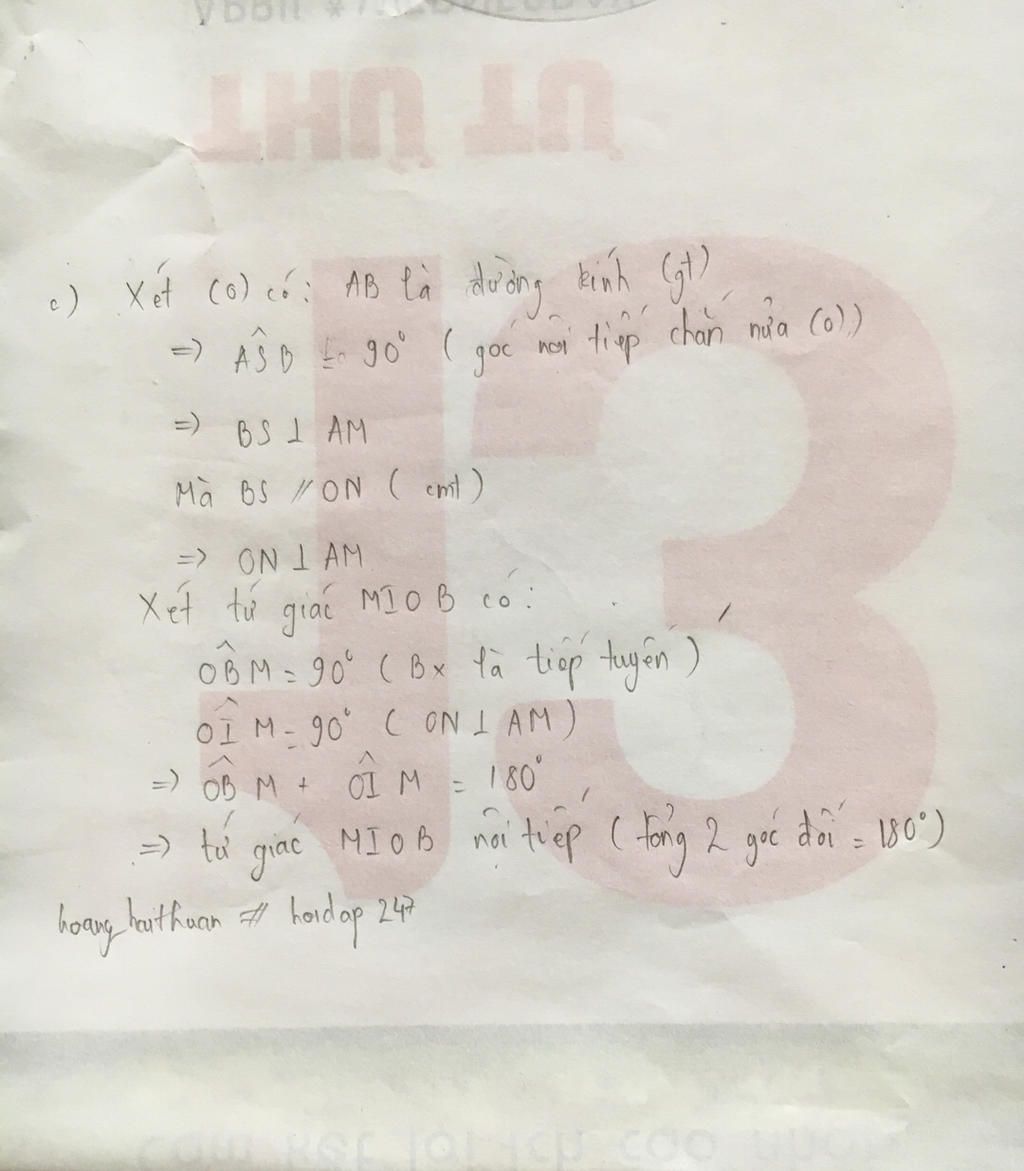 c) Xét (O) có: AB là đường kính (gt)
=> AŜB = 90° ( góc nội tiếp chắn nửa (O))
=> BS ⊥ AM
Mà BS // ON ( cmt )
=> ON ⊥ AM
Xét tứ giác MIOB có:
OB̂M = 90° ( Bx là tiếp tuyến )
OÎM = 90° ( ON ⊥ AM )
=> OB̂M + OÎM = 180°
=> tứ giác MIOB nội tiếp ( tổng 2 góc đối = 180° )
hoang_haithuan # hoidap 247